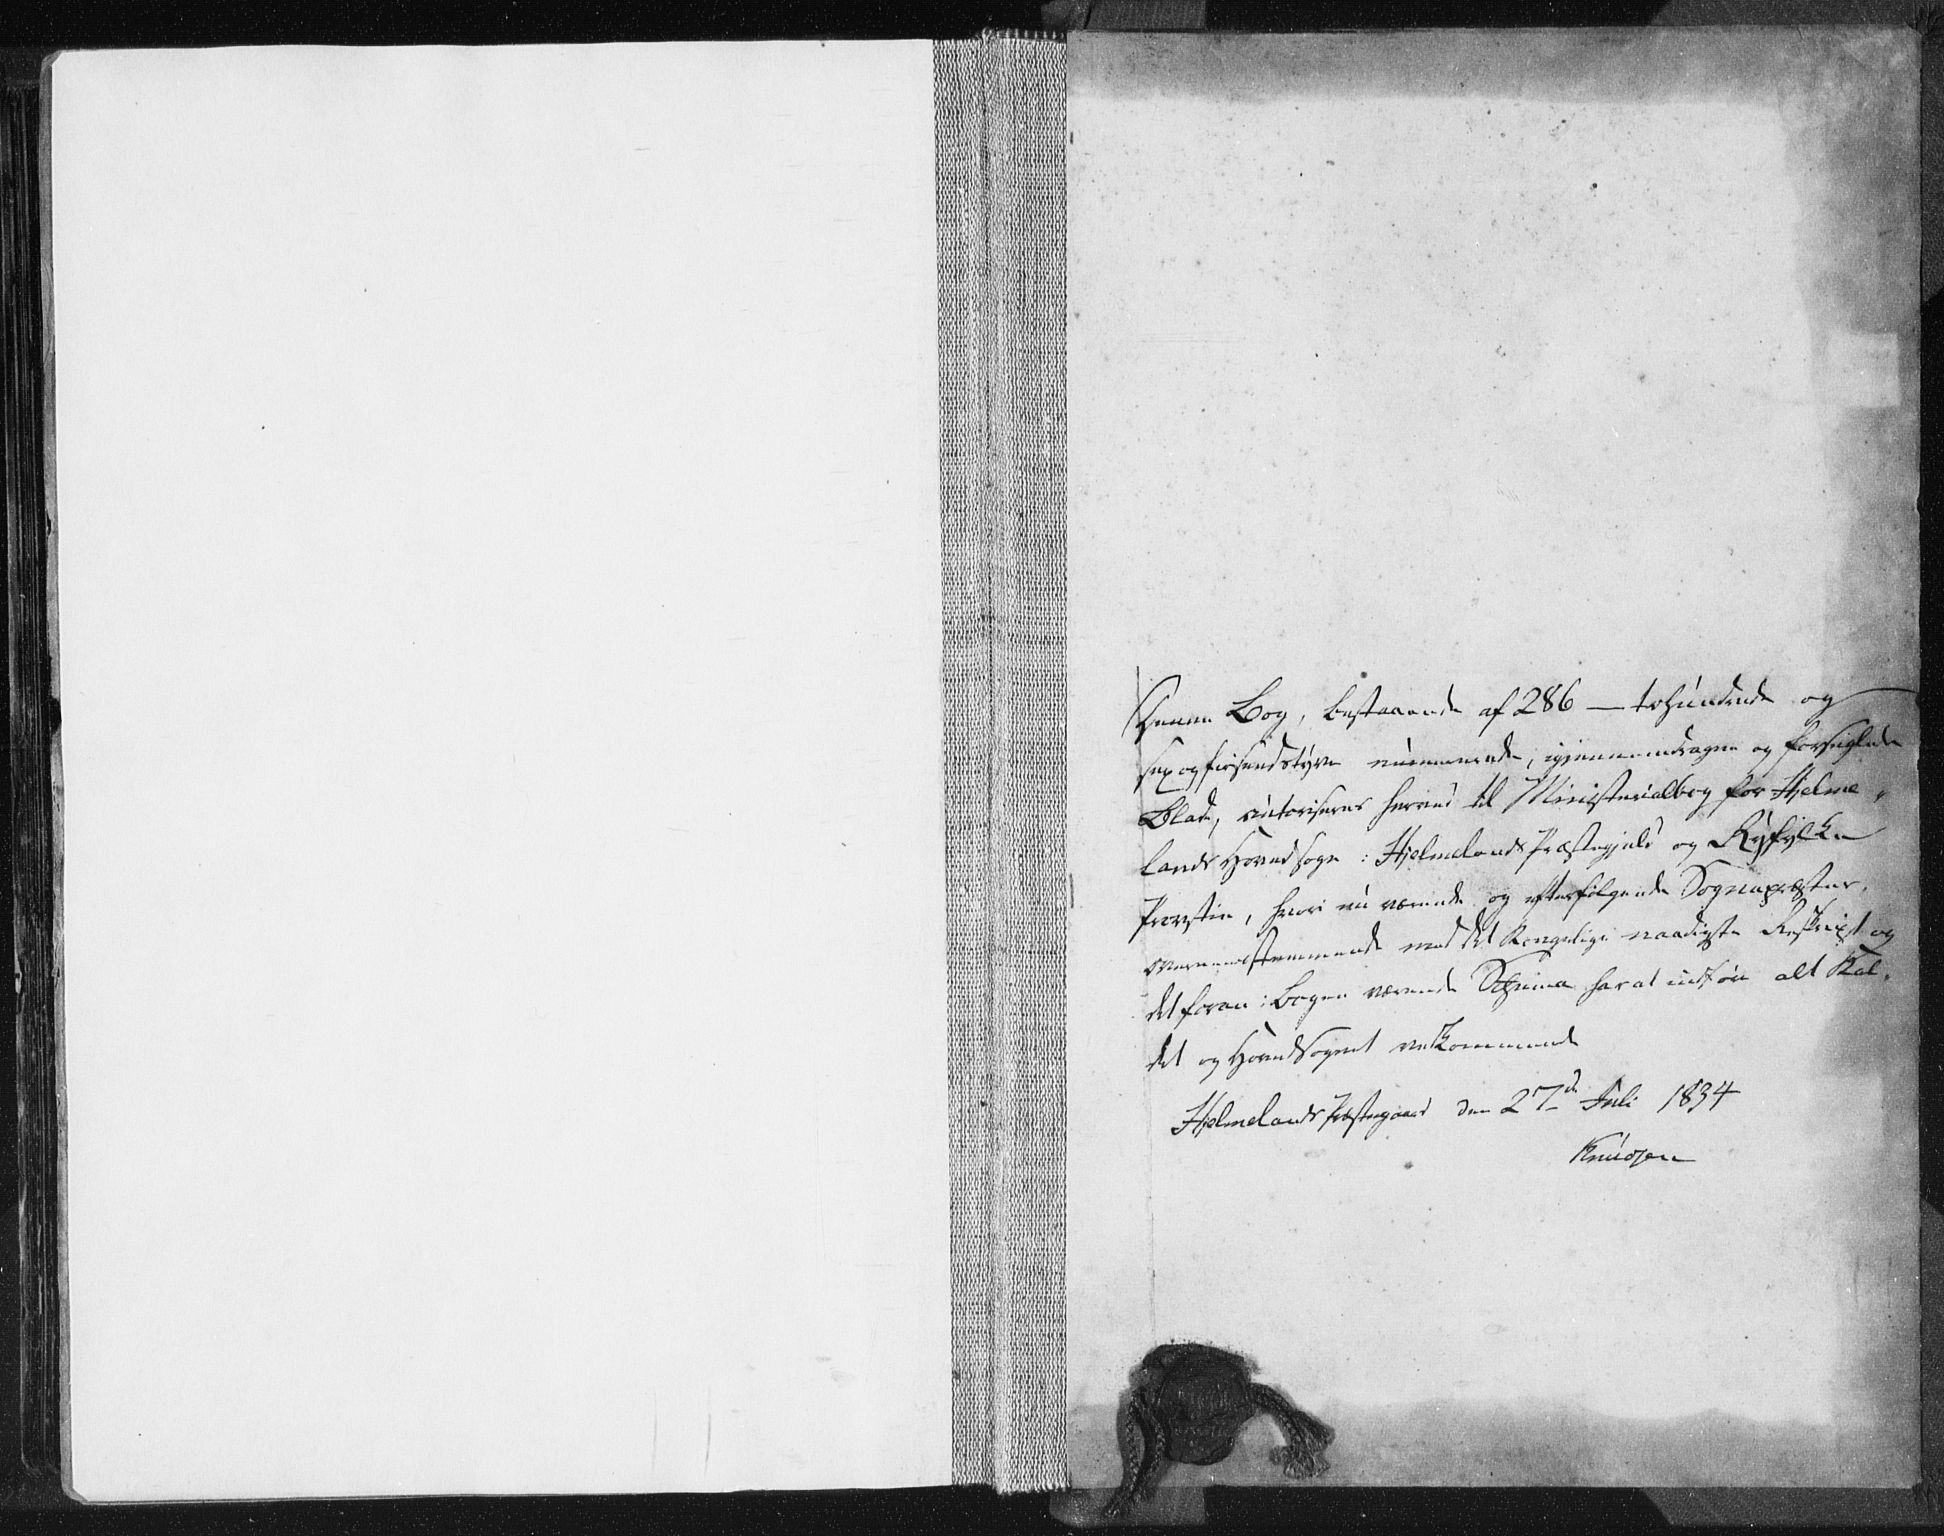 Denne Bog, bestaaende af 286 — tohundrede og
sexogfirsindstyve numerede, igjennemdragne og forseglede
Blade, autoriseres herved til Ministerialbog for Hjelme-
lands Hovedsogn i Hjelmelands Præstegjeld og Ryfylke
Provstie, hvori nu værende og efterfølgende Sognepræster,
overeensstemmende med det Kongelige naadigste Reskript og
det foran i Bogen værende Schema har at indføre alt Kal-
det og Hovedsognet vedkommende
Hjelmelands Præstegaard den 27de Juli 1834
Knudsen